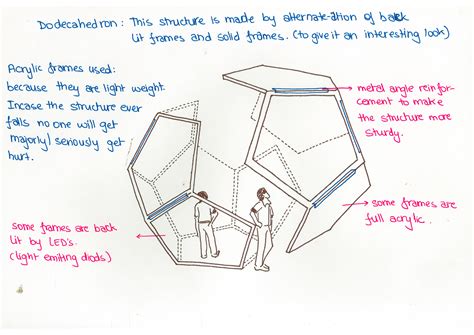 Dodecahedron : This structure is made by alternate-ation of back
lit frames and solid frames. (to give it an interesting look)
Acrylic frames used:
because they are light weight.
Incase the structure ever
falls no one will get
majorly/ seriously get
hurt.
metal angle reinfor-
cement to make
the structure more
sturdy.
some frames are
full acrylic.
some frames are back
lit by LED's.
(light emiting diods)